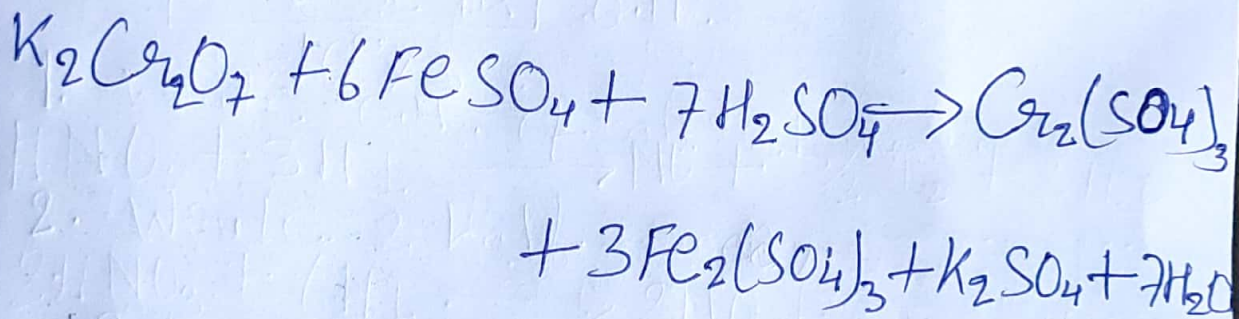 K₂Cr₂O₇ + 6FeSO₄ + 7H₂SO₄ → Cr₂(SO₄)₃
+ 3Fe₂(SO₄)₃ + K₂SO₄ + 7H₂O